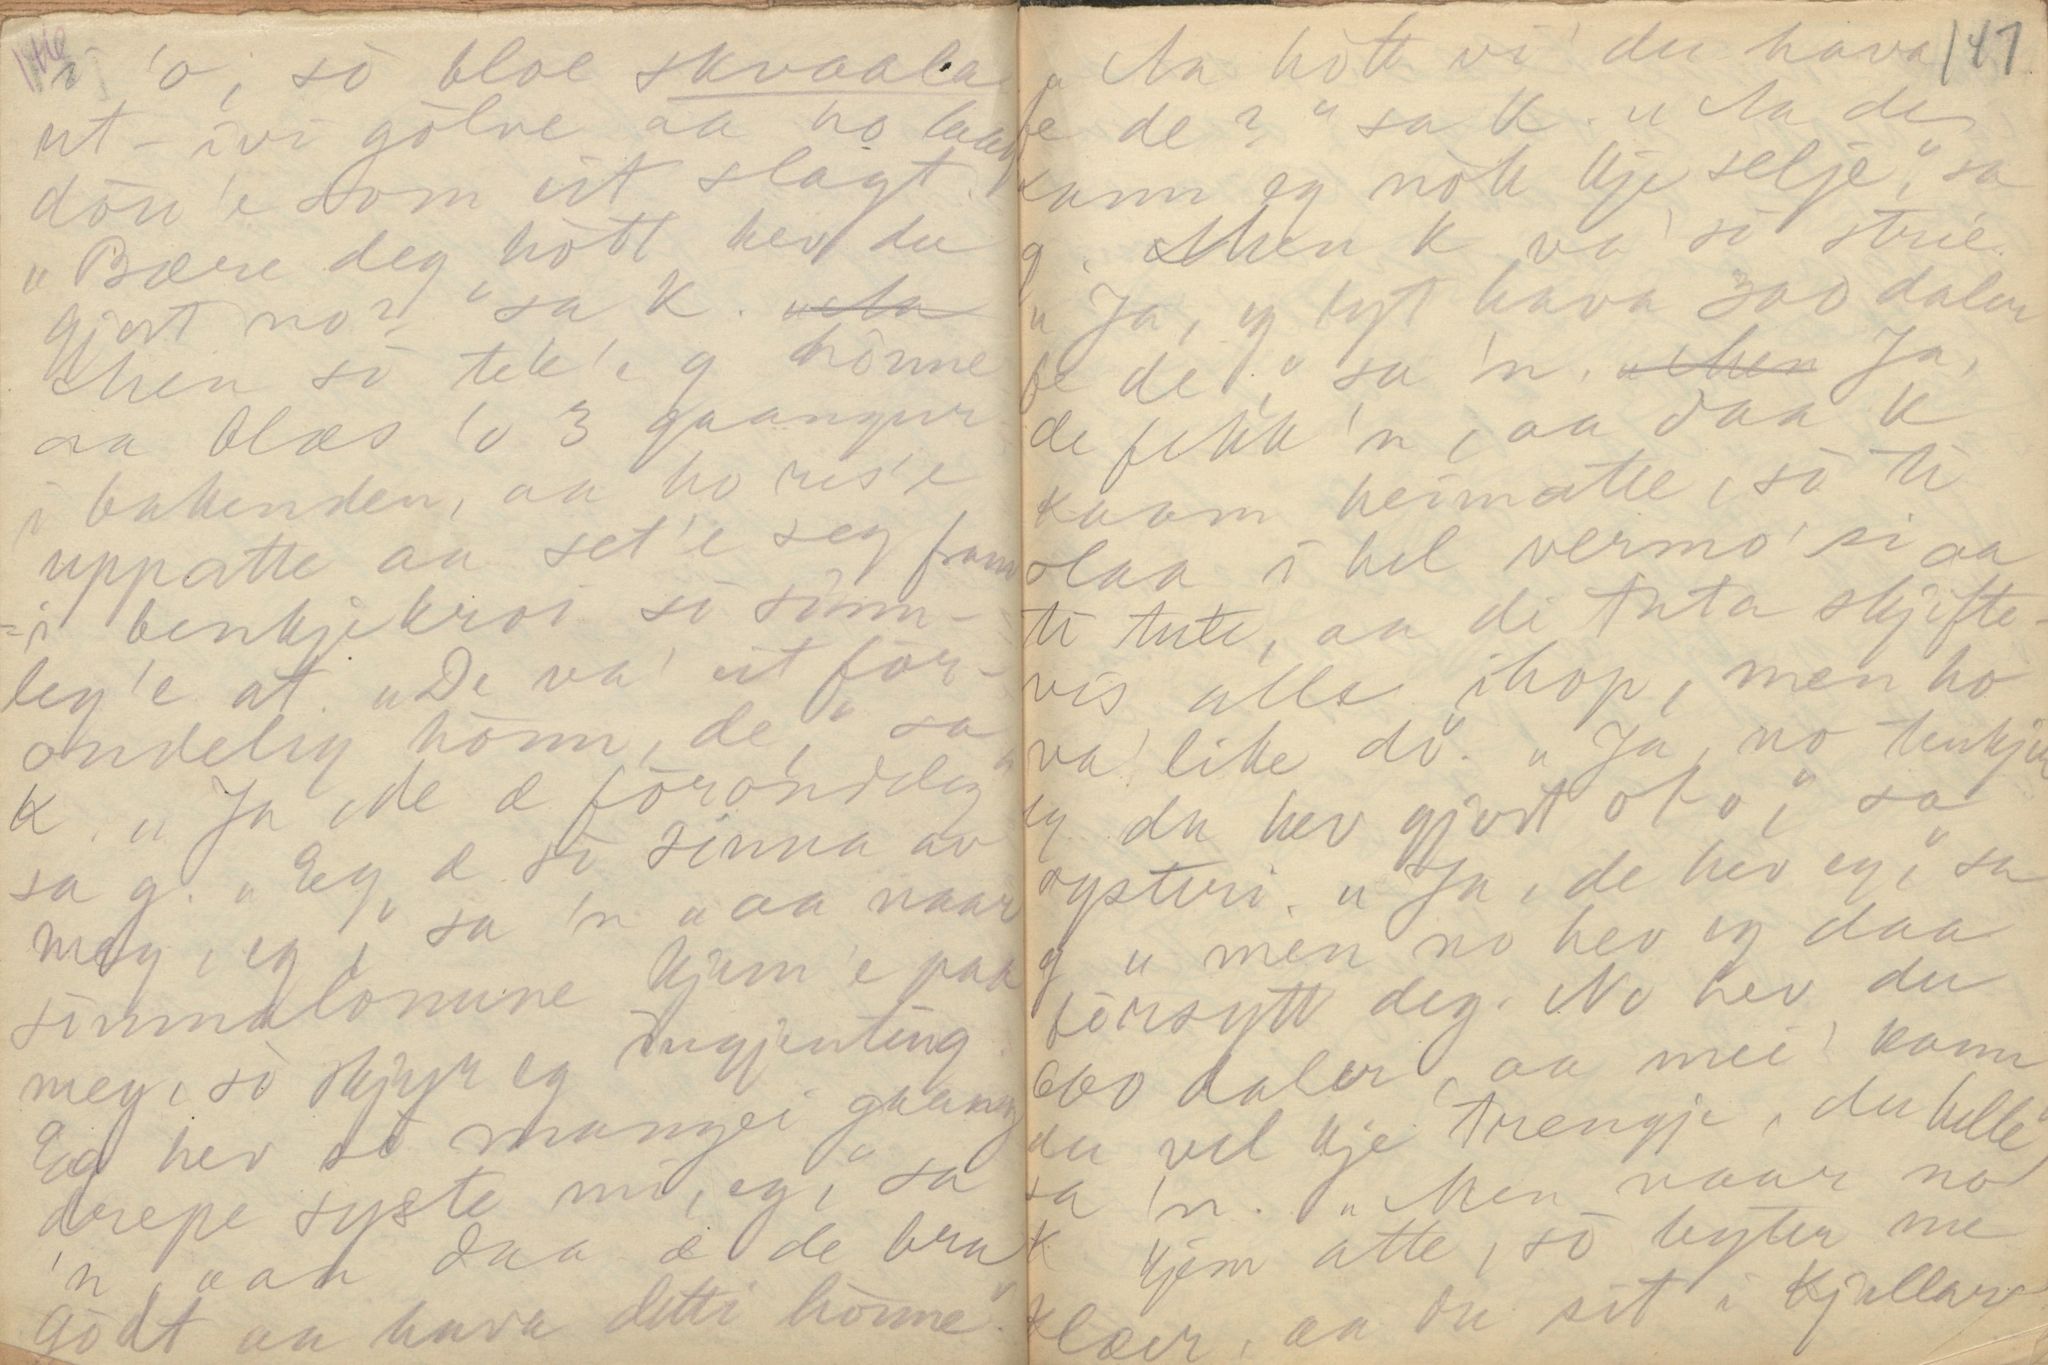 146
i 'o, sò bloe skvaala
ut-ivi gòlve aa ho laag
dòu'e som eit slagt.
„Bære deg hòtt hev du
gjort no?" sa K.
Men sò tek'e g hònne
aa blæs 'o 3 gaangur
i bakenden, aa ho ris'e
uppatte aa set'e seg fram
=i benkjekroi sò sinn-
leg'e at. „De va' eit for-
ondelig hònn, de," sa
K. „Ja, de æ fòronddeleg"
sa g. „Eg æ sò sinna av
meg, eg," sa 'n „aa naar
sinnalomune kjem'e paa
meg, sò skjyr eg ingjenting.
Eg hev sò mangei gaang
drepe syste mi, eg," sa
'n, „aa daa æ de bra
gòdt aa hava detti hònne".
147
„Aa hòtt vi' du hava
fe de?" sa K. „Aa de
kann eg nòk kje selje," sa
g. Men K va' sò strie.
„Ja, eg lyt hava 300 daler
fe de," sa 'n. Ja,
de fekk 'n, aa daa K
kaam heimatte, sò ti
slaa i hel vermo' si aa
ti tute, aa di tuta skjifte-
vis alle ihop, men ho
va' like dò. „Ja, no tenkjer
eg du hev gjort ato," sa
systeri. „Ja, de hev eg," sa
g „men no hev eg daa
fòrsytt deg. No hev du
600 daler, aa mei' kann
du vel kje trengje, du helle"
sa 'n. „Men naar no
K kjem atte, sò byter me
klær, aa du sit i kjellare